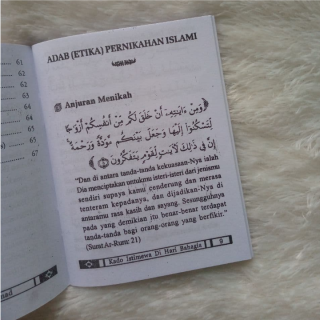 61
62
64
65
65
67
ADAB (ETIKA) PERNIKAHAN ISLAMI
Anjuran Menikah
﴿وَمِنْ ءَايَٰتِهِۦٓ أَنْ خَلَقَ لَكُم مِّنْ أَنفُسِكُمْ أَزْوَٰجًا
لِّتَسْكُنُوٓا۟ إِلَيْهَا وَجَعَلَ بَيْنَكُم مَّوَدَّةً وَرَحْمَةً
إِنَّ فِى ذَٰلِكَ لَءَايَٰتٍ لِّقَوْمٍ يَتَفَكَّرُونَ﴾
"Dan di antara tanda-tanda kekuasaan-Nya ialah
Dia menciptakan untukmu isteri-isteri dari jenismu
sendiri supaya kamu cenderung dan merasa
tenteram kepadanya, dan dijadikan-Nya di
antaramu rasa kasih dan sayang. Sesungguhnya
pada yang demikian itu benar-benar terdapat
tanda-tanda bagi orang-orang yang berfikir."
(Surat Ar-Rum: 21)
Kado Istimewa Di Hari Bahagia
9